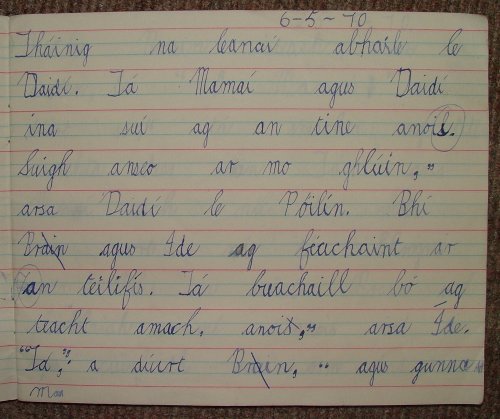 6-5-70
Tháinig na leanaí abhaile le
Daidí. Tá Mamaí agus Daidí
ina suí ag an tine anois.
Suigh anseo ar mo ghlúin,"
arsa Daidí le Póilín. Bhí
Brain agus Íde ag féachaint ar
an teilifís. Tá buachaill bó ag
teacht amach, anois," arsa Íde.
"Tá," a dúirt Brain, " agus gunna